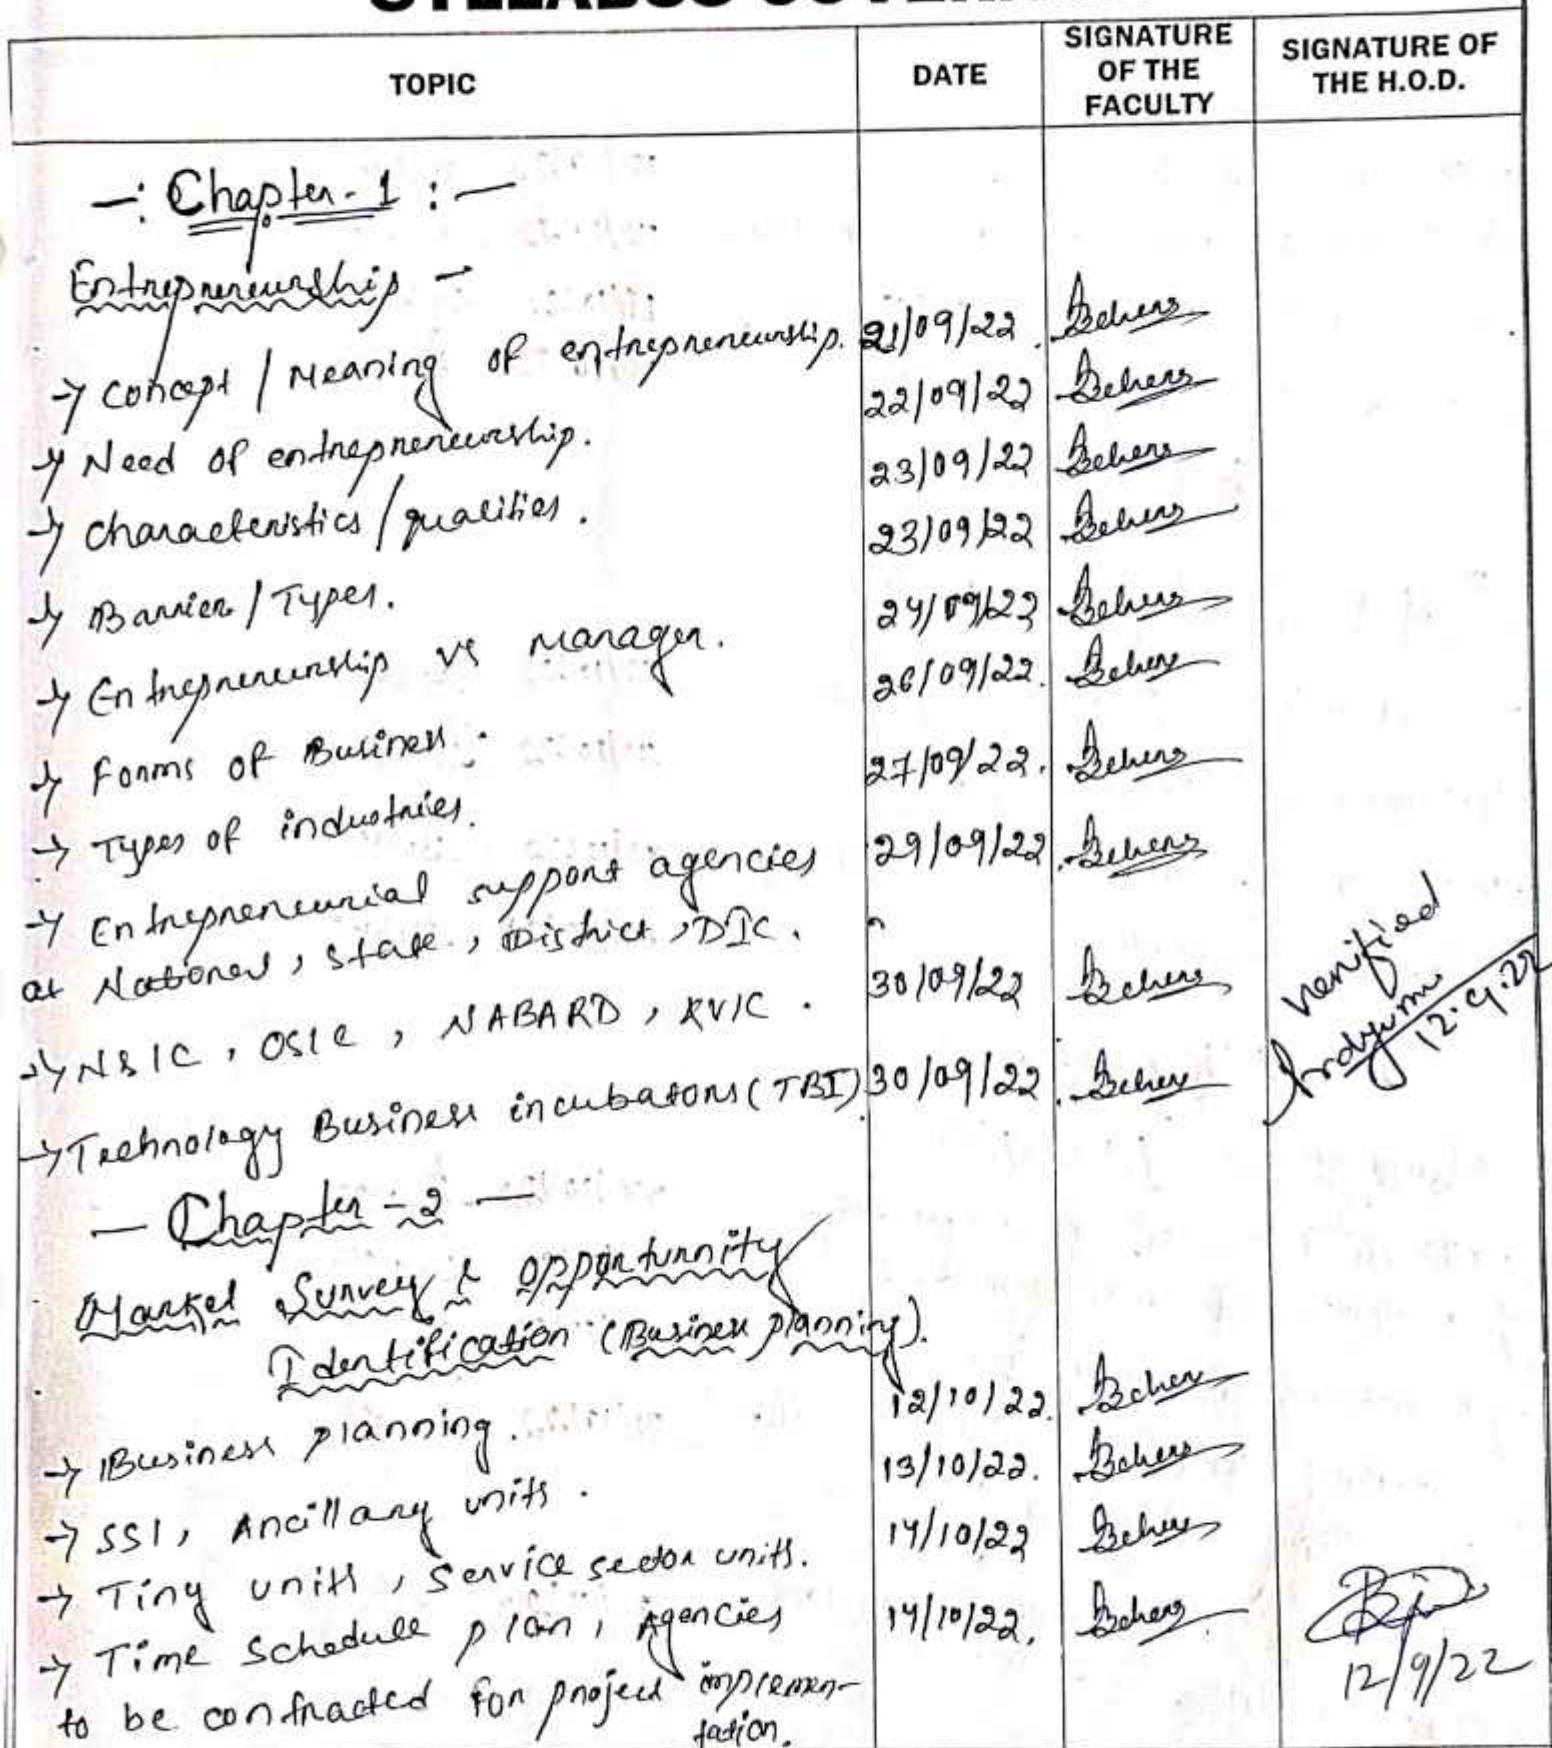 SYLLABUS COVERAGE
TOPIC DATE SIGNATURE OF THE FACULTY SIGNATURE OF THE H.O.D.
-: Chapter-1 :-
Entrepreneurship -
→ Concept / Meaning of entrepreneurship. 21/09/22 Behera
→ Need of entrepreneurship. 22/09/22 Behera
→ Characteristics / qualities. 23/09/22 Behera
→ Barrier / Types. 23/09/22 Behera
→ Entrepreneurship vs Manager. 24/09/22 Behera
→ Forms of Business. 26/09/22. Behera
→ Types of industries. 27/09/22. Behera
→ Entrepreneurial support agencies 29/09/22 Behera
at National, State, District, DIC.
→ NSIC, OSIC, NABARD, KVIC. 30/09/22 Behera
→ Technology Business incubators (TBI) 30/09/22 Behera
Verified
12.9.22
- Chapter-2 -
Market Survey & Opportunnity
Identification (Business planning).
→ Business planning. 12/10/22. Behera
→ SSI, Ancillary units. 13/10/22. Behera
→ Tiny units, Service sector units. 14/10/22 Behera
→ Time Schedule plan, Agencies 14/10/22. Behera
to be contracted for project implemen-
tation.
12/9/22